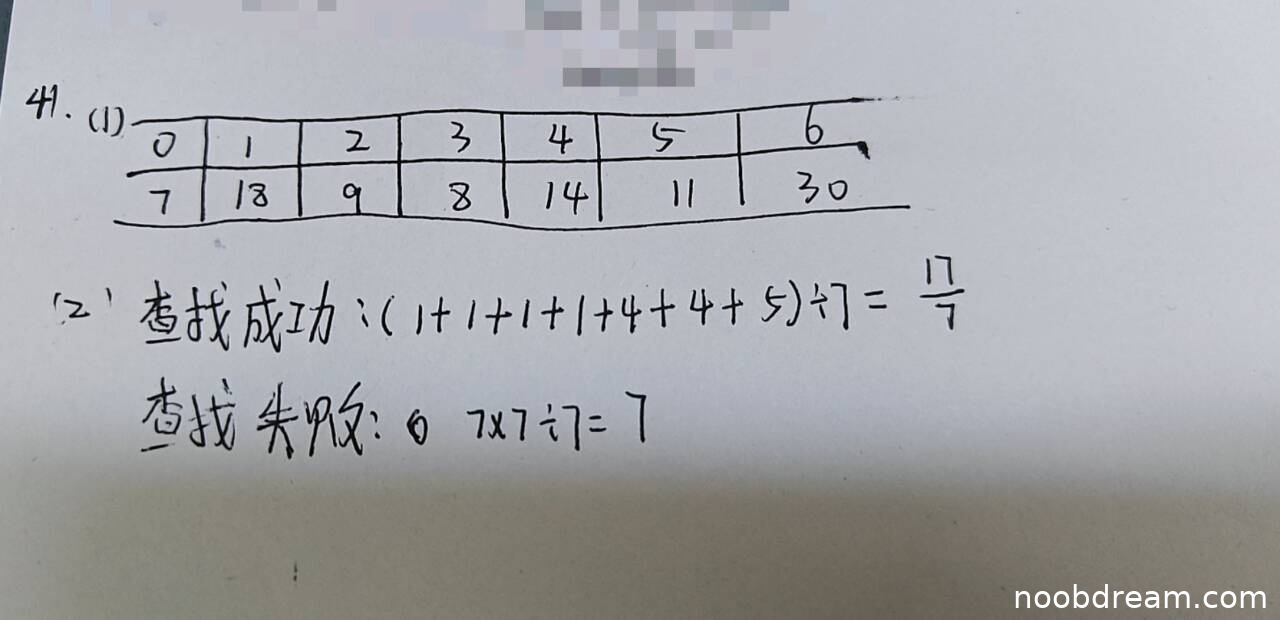 41. (1)
0 1 2 3 4 5 6
7 18 9 8 14 11 30
(2) 查找成功:(1+1+1+1+4+4+5)÷7= 17/7
查找失败: 7×7÷7=7
noobdream.com